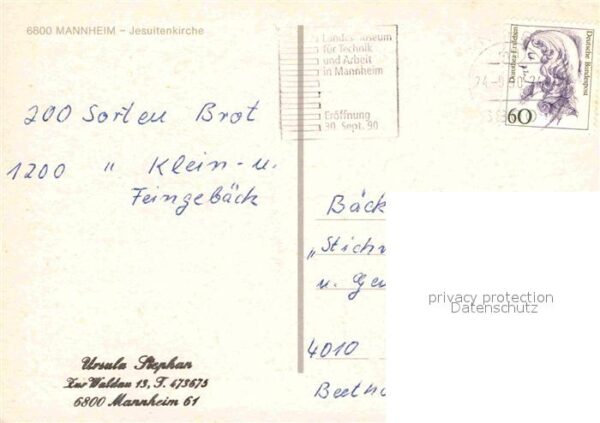 6800 MANNHEIM – Jesuitenkirche
für Technik
und Arbeit
in Mannheim
Eröffnung
30. Sept. 90
Deutsche Bundespost
Dorothea Erxleben
60
200 Sorten Brot
1200 " Klein- u.
Feingebäck
Bäck
„Stich
u. Ge
4010
Beetho
privacy protection
Datenschutz
Ursula Stephan
Zur Waldau 13, T. 473675
6800 Mannheim 61